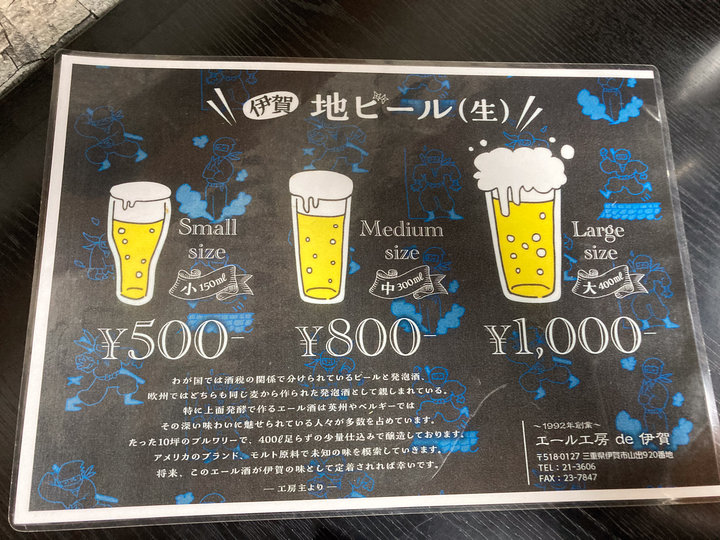 伊賀 地ビール(生)
Small size
小 150ml
¥500-
Medium size
中 300ml
¥800-
Large size
大 400ml
¥1,000-
わが国では酒税の関係で分けられているビールと発泡酒、
欧州ではどちらも同じ麦から作られた発泡酒として親しまれている。
特に上面発酵で作るエール酒は英州やベルギーでは
その深い味わいに魅せられている人々が多数を占めています。
たった10坪のブルワリーで、400ℓ足らずの少量仕込みで醸造しております。
アメリカのブランド、モルト原料で未知の味を模索していきます。
将来、このエール酒が伊賀の味として定着されれば幸いです。
― 工房主より ―
～1992年創業～
エール工房 de 伊賀
〒518-0127 三重県伊賀市山出920番地
TEL：21-3606
FAX：23-7847